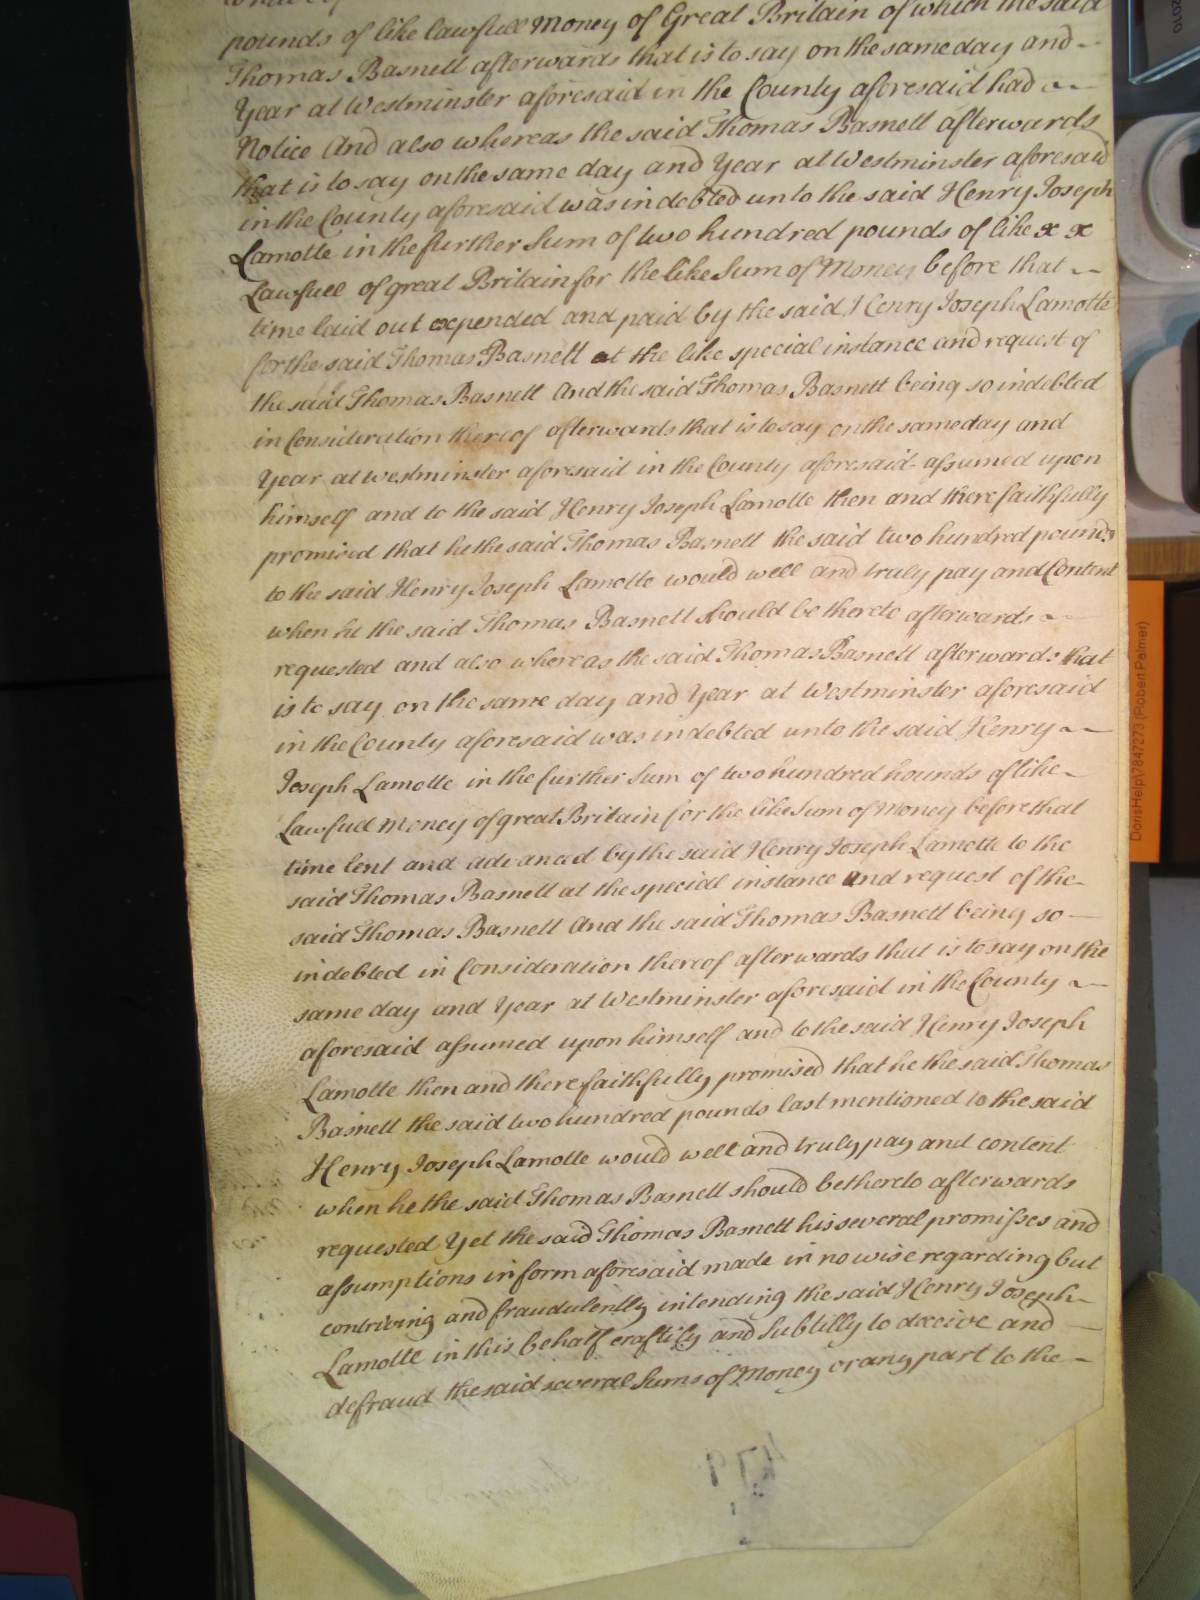 pounds of like lawfull Money of Great Britain of which the said
Thomas Basnett afterwards that is to say on the same day and
Year at Westminster aforesaid in the County aforesaid had
Notice And also whereas the said Thomas Basnett afterwards
that is to say on the same day and Year at Westminster aforesaid
in the County aforesaid was indebted unto the said Henry Joseph
Lamotte in the further Sum of two hundred pounds of like x x
Lawfull of great Britain for the like Sum of Money before that
time laid out expended and paid by the said Henry Joseph Lamotte
for the said Thomas Basnett at the like special instance and request of
the said Thomas Basnett And the said Thomas Basnett being so indebted
in Consideration thereof afterwards that is to say on the same day and
Year at Westminster aforesaid in the County aforesaid assumed upon
himself and to the said Henry Joseph Lamotte then and there faithfully
promised that he the said Thomas Basnett the said two hundred pounds
to the said Henry Joseph Lamotte would well and truly pay and Content
when he the said Thomas Basnett should be thereto afterwards
requested and also whereas the said Thomas Basnett afterwards that
is to say on the same day and Year at Westminster aforesaid
in the County aforesaid was indebted unto the said Henry
Joseph Lamotte in the further Sum of two hundred hounds of like
Lawfull Money of great Britain for the like Sum of Money before that
time lent and advanced by the said Henry Joseph Lamotte to the
said Thomas Basnett at the special instance and request of the
said Thomas Basnett And the said Thomas Basnett being so
indebted in Consideration thereof afterwards that is to say on the
same day and Year at Westminster aforesaid in the County
aforesaid assumed upon himself and to the said Henry Joseph
Lamotte then and there faithfully promised that he the said Thomas
Basnett the said two hundred pounds last mentioned to the said
Henry Joseph Lamotte would well and truly pay and content
when he the said Thomas Basnett should be thereto afterwards
requested Yet the said Thomas Basnett his several promisses and
assumptions in form aforesaid made in no wise regarding but
contriving and fraudulently intending the said Henry Joseph
Lamotte in this behalf craftily and Subtilly to deceive and
defraud the said several Sums of Money or any part to the
479
DorisHelp\7847273 (Robert Palmer)
2010